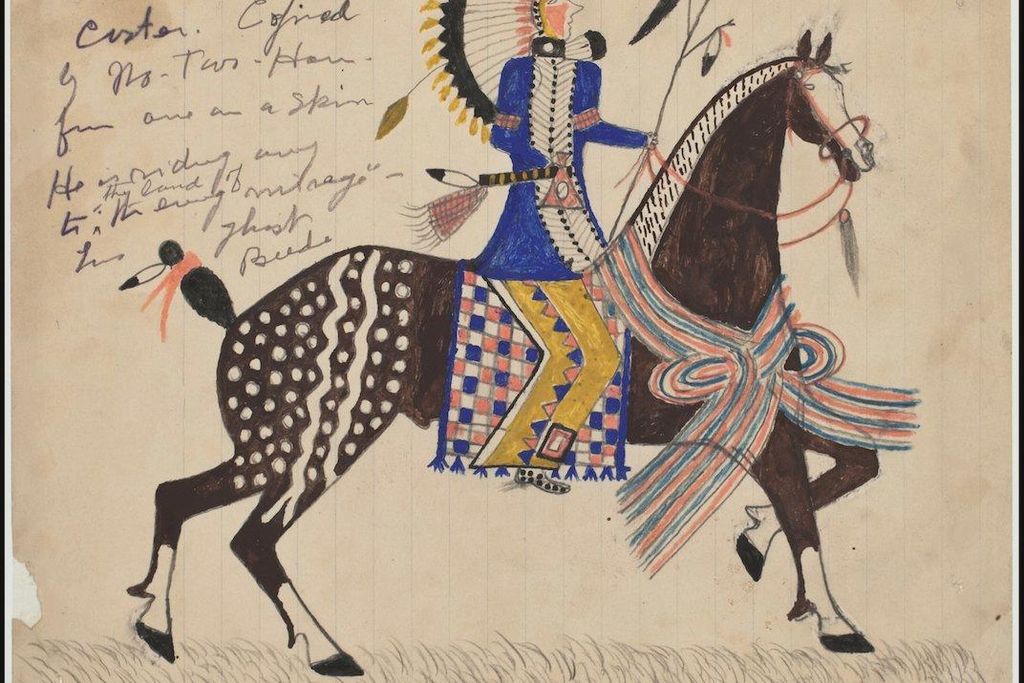 Custer. Copied
by No-Two-Horn-
from one on a skin
He is riding away
"the land of
to "the mirage" -
his ghost
Beede